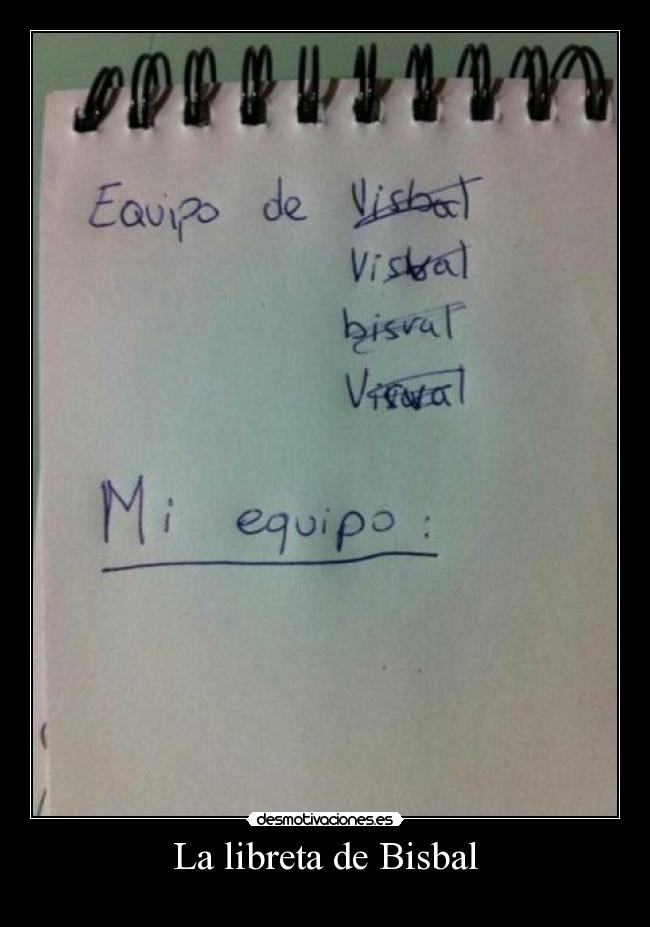 Equipo de Visbal
Visbal
bisval
Visval
Mi equipo:
desmotivaciones.es
La libreta de Bisbal